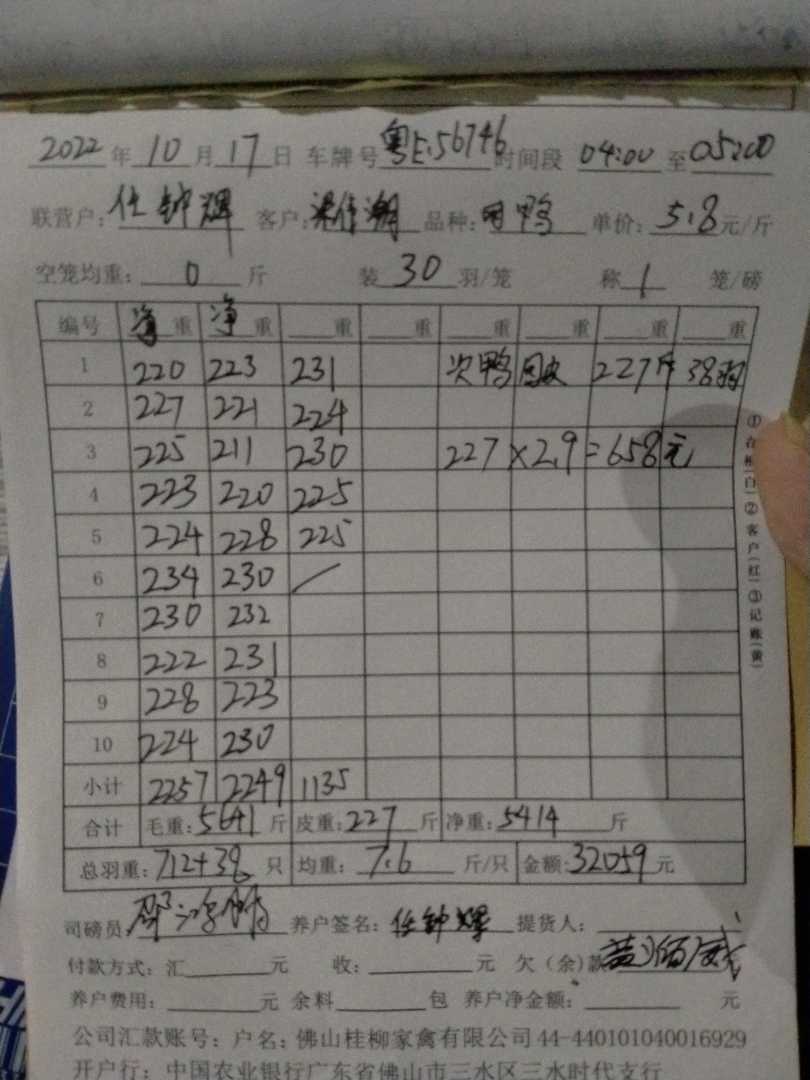 2022年10月17日 车牌号粤E.56746时间段 04:00至05:00
联营户:任钟辉 客户: 品种:鸭 单价:5.8元/斤
空笼均重:0斤 装30羽/笼 称1笼/磅
编号 重 净重 重 重 重 重 重 重
1 220 223 231 次鸭 227斤 38羽
2 227 221 224
3 225 211 230 227×2.9=658元
4 223 220 225
5 224 228 225
6 234 230 /
7 230 232
8 222 231
9 228 223
10 224 230
小计 2257 2249 1135
合计 毛重:5641斤 皮重:227斤 净重:5414斤
总羽重:712+38只 均重:7.6斤/只 金额:32059元
司磅员: 养户签名:任钟辉 提货人:
付款方式:汇元 收:元 欠(余)款
养户费用:元 余料包 养户净金额:元
公司汇款账号:户名:佛山桂柳家禽有限公司44-440101040016929
开户行:中国农业银行广东省佛山市三水区三水时代支行
①存根(白)②客户(红)③记账(黄)